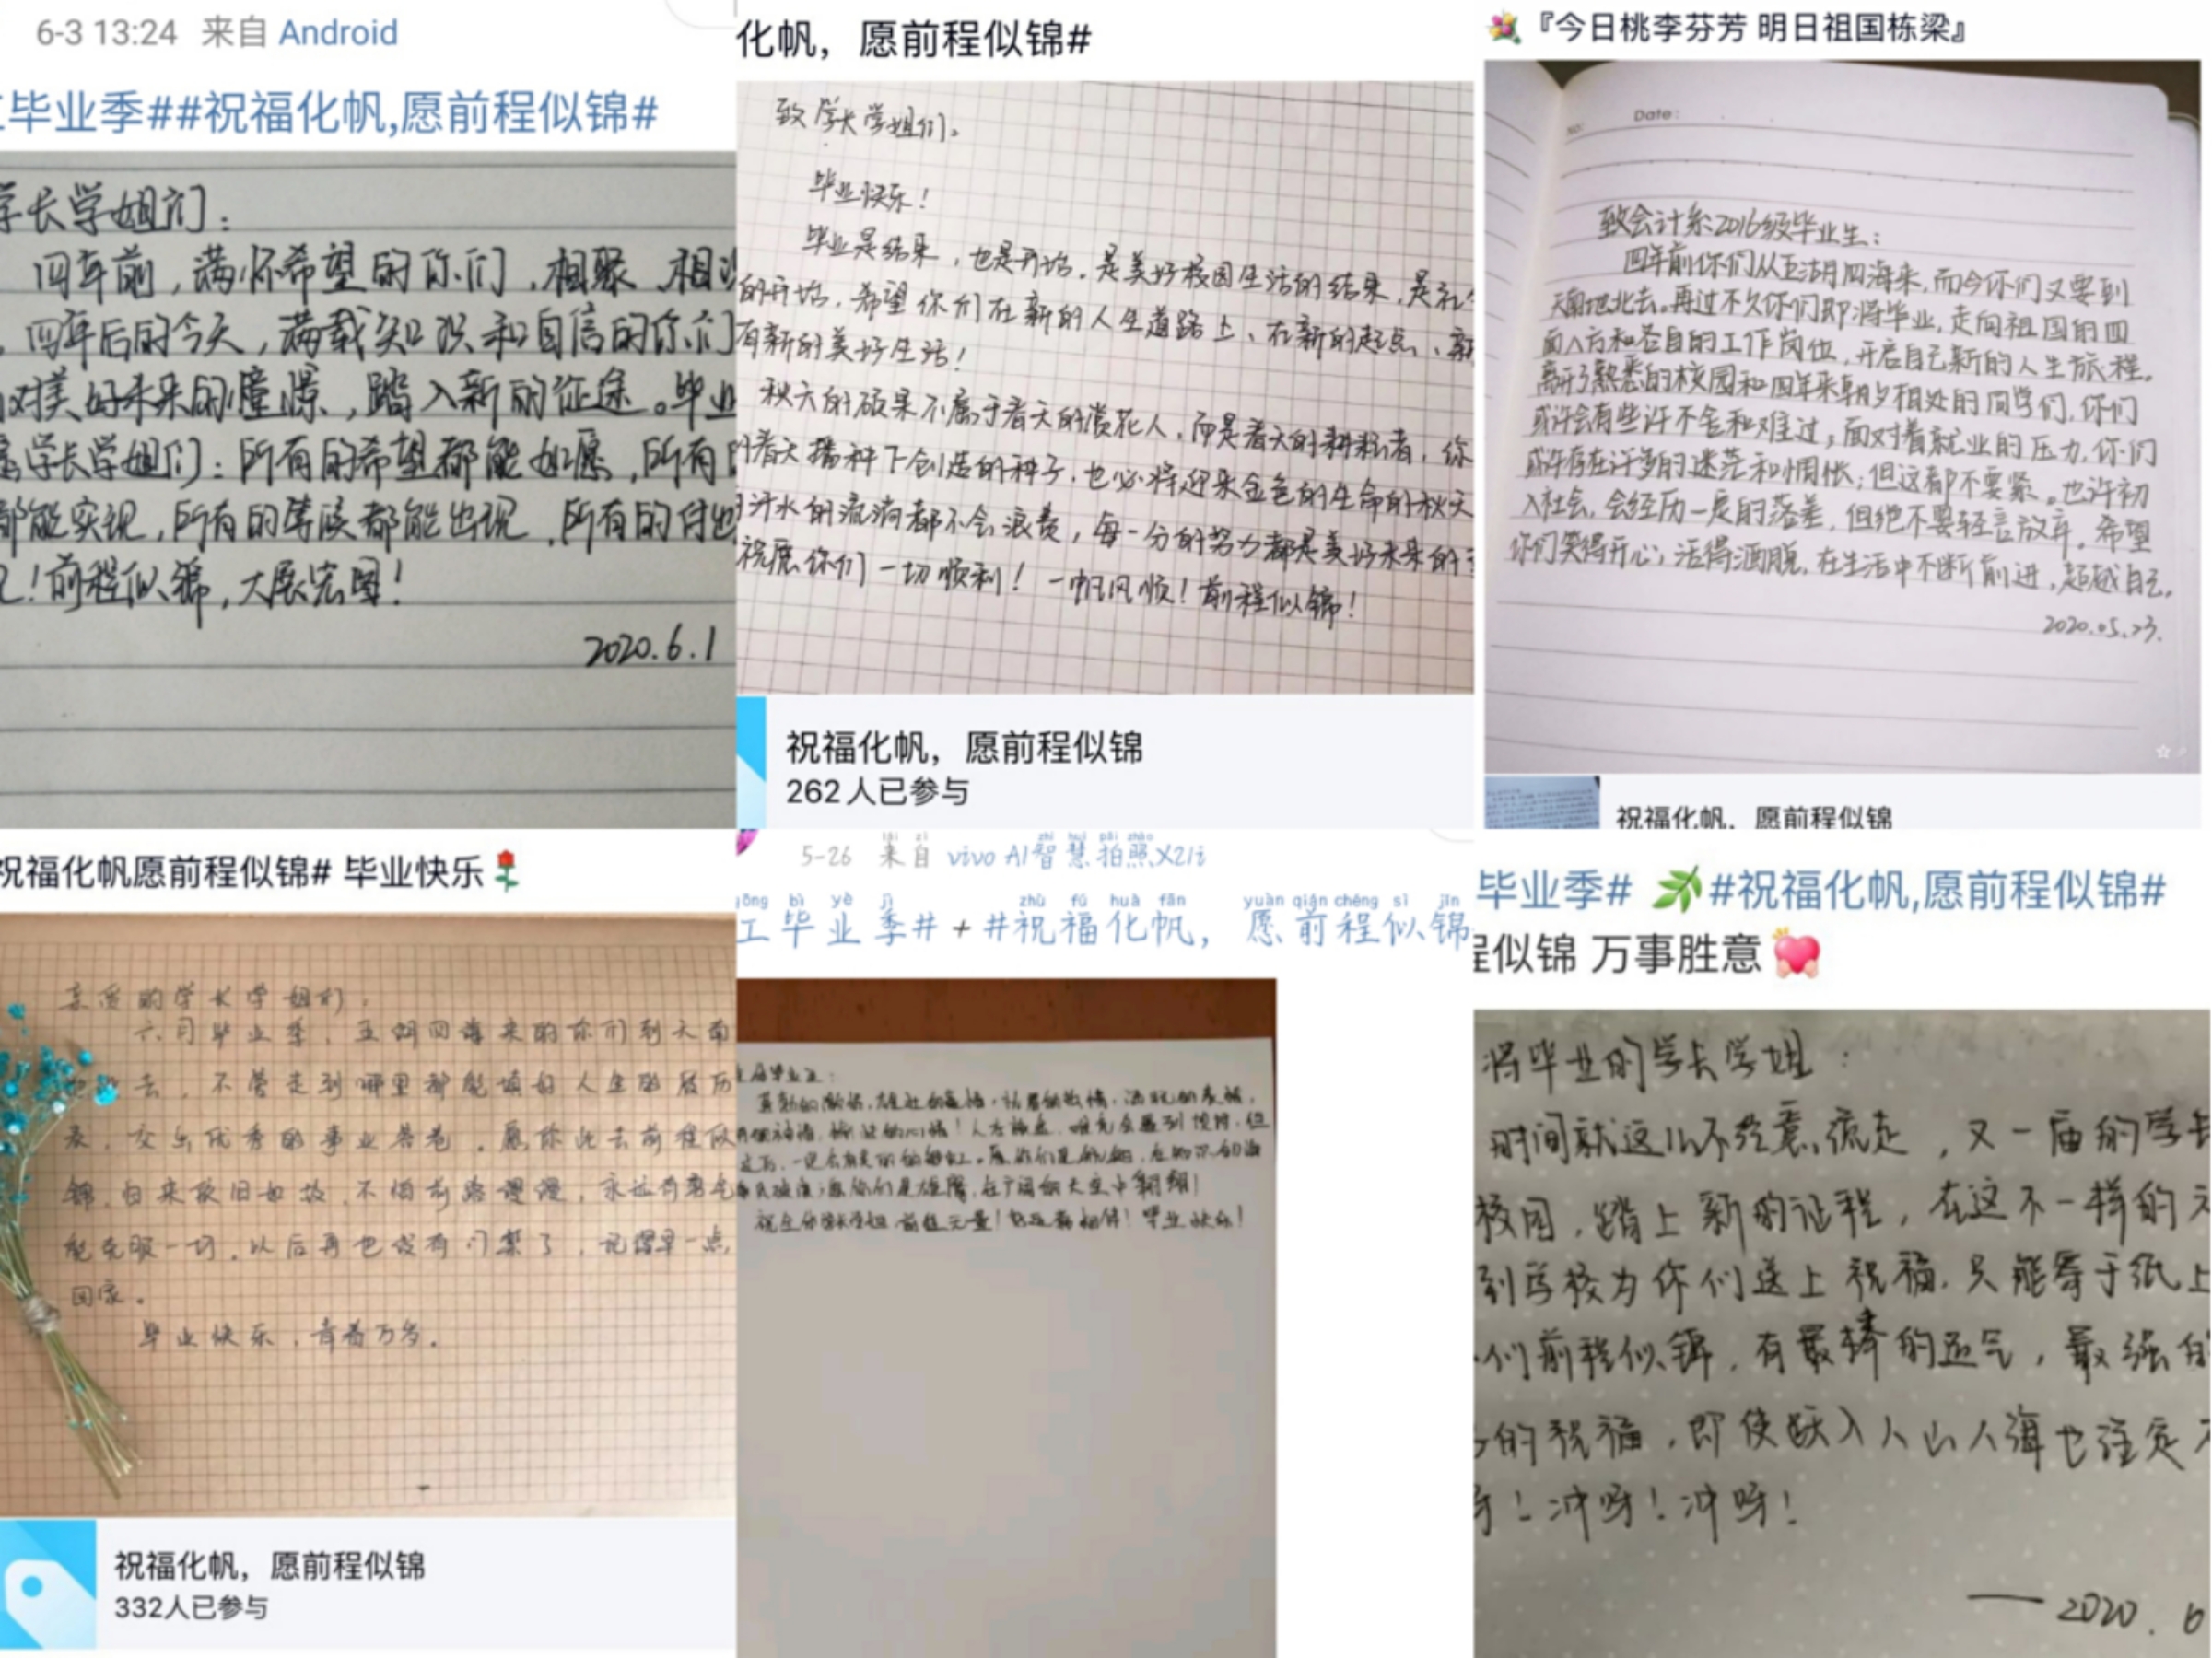 6-3 13:24 来自 Android
毕业季##祝福化帆,愿前程似锦#
学长学姐们：
四年前，满怀希望的你们，相聚、相
四年后的今天，满载知识和自信的你们
对美好未来的憧憬，踏入新的征途。毕业
学长学姐们：所有的希望都能如愿，所有
都能实现，所有的等候都能出现，所有的付出
！前程似锦，大展宏图！
2020.6.1
化帆，愿前程似锦#
致学长学姐们。
毕业快乐！
毕业是结果，也是开始。是美好校园生活的结果，是
的开始。希望你们在新的人生道路上、在新的起点、
有新的美好生活！
秋天的硕果不属于春天的赏花人，而是春天的耕耘者，你
春天播种下创造的种子，也必将迎来金色的生命的秋天
汗水的流淌都不会浪费，每一分的努力都是美好未来的
祝愿你们一切顺利！一帆风顺！前程似锦！
祝福化帆，愿前程似锦
262人已参与
『今日桃李芬芳 明日祖国栋梁』
No: Date:
致会计系2016级毕业生：
四年前你们从五湖四海来，而今你们又要到
天南地北去。再过不久你们即将毕业，走向祖国的四
面八方和各自的工作岗位，开启自己新的人生旅程。
离开了熟悉的校园和四年来朝夕相处的同学们，你们
或许会有些许不舍和难过，面对着就业的压力，你们
或许存在许多的迷茫和惆怅；但这都不要紧。也许初
入社会，会经历一度的落差，但绝不要轻言放弃。希望
你们笑得开心，活得洒脱，在生活中不断前进，超越自己。
2020.05.23.
祝福化帆，愿前程似锦
祝福化帆愿前程似锦# 毕业快乐
亲爱的学长学姐们：
六月毕业季，五湖四海来的你们到天南
去，不管走到哪里都能填好人生的履历
表，交出优秀的事业答卷。愿你此去前程似
锦，归来依旧如故，不惧前路漫漫，永远有勇气
能克服一切。以后再也没有门禁了，记得早一点
回家。
毕业快乐，青春万岁。
祝福化帆，愿前程似锦
332人已参与
lái zì zhì huì pāi zhào
5-26 来自 vivo AI智慧拍照X21i
gōng bì yè jì zhù fú huà fān yuàn qián chéng sì jǐn
工毕业季# + #祝福化帆，愿前程似锦
毕业快乐！
毕业季# #祝福化帆,愿前程似锦#
程似锦 万事胜意
将毕业的学长学姐：
时间就这么不经意流走，又一届的学长
校园，踏上新的征程，在这不一样的
到学校为你们送上祝福，只能寄于纸上
们前程似锦，有最棒的运气，最强的
的祝福，即使跃入人山人海也注定
！冲呀！冲呀！
——2020.6